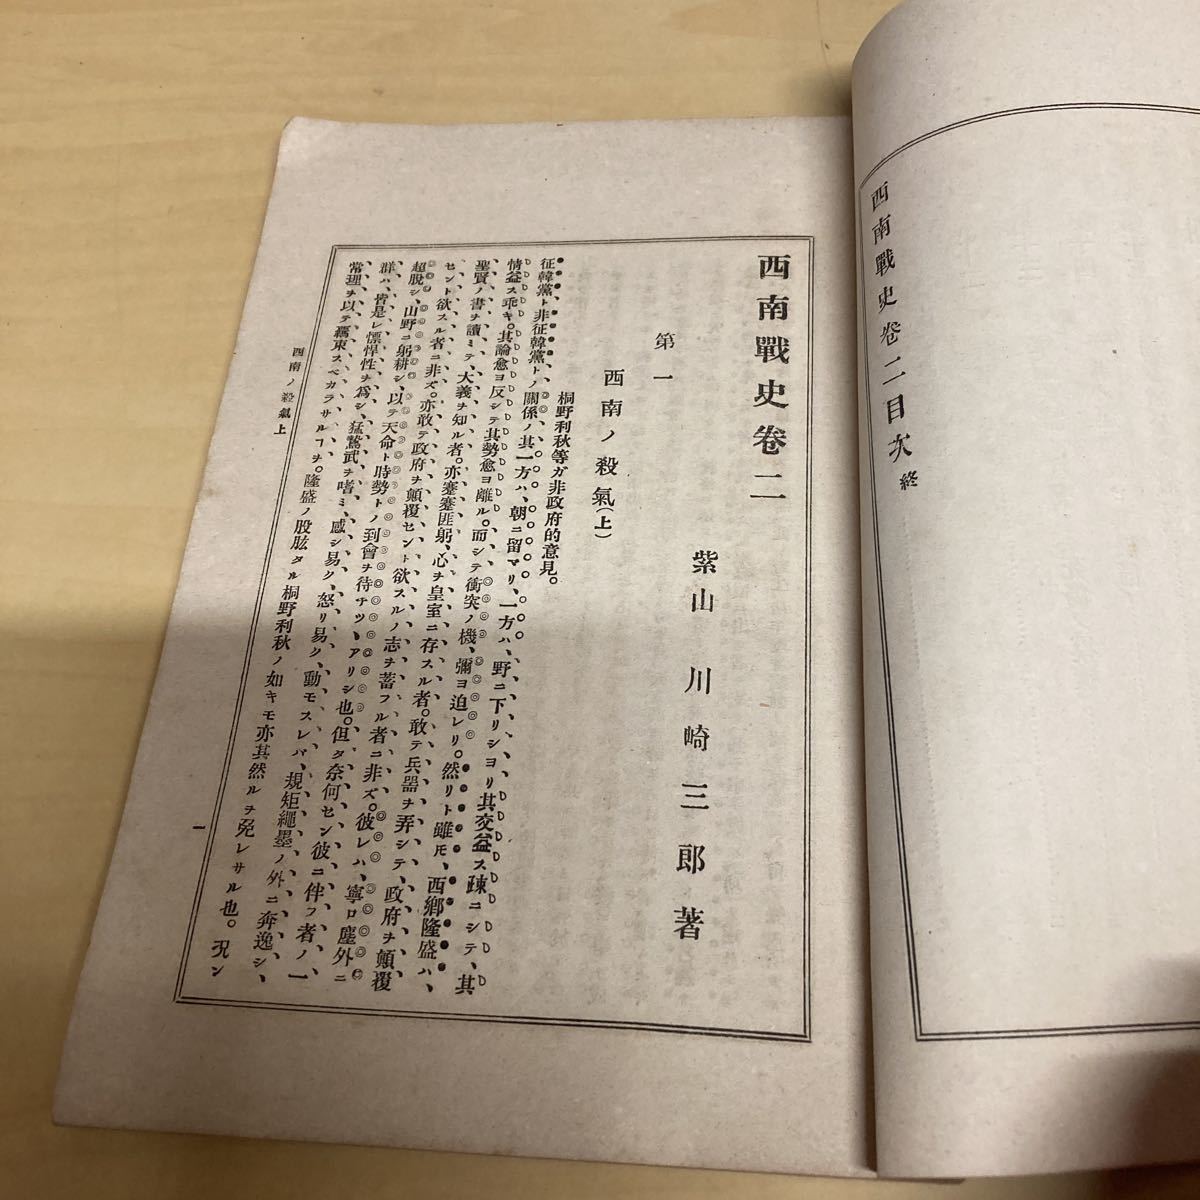 西南戰史卷二目次終
西南戰史卷二
紫山 川崎三郎著
第一
西南ノ殺氣(上)
桐野利秋等ガ非政府的意見。
征韓黨ト非征韓黨トノ關係ノ其一方ハ、朝ニ留マリ、一方ハ、野ニ下リショリ其交益ス疎ニシテ、其
情益ス乖キ。其論愈ヨ反シテ其勢愈ヨ離ル。而シテ衝突ノ機、彌ヨ迫レリ。然リト雖モ、西鄕隆盛ハ、
聖賢ノ書ヲ讀ミテ、大義ヲ知ル者。亦蹇蹇匪躬、心ヲ皇室ニ存スル者。敢テ兵器ヲ弄シテ、政府ヲ顚覆
セント欲スル者ニ非ズ。亦敢テ政府ヲ顚覆セント欲スルノ志ヲ蓄フル者ニ非ズ。彼レハ、寧ロ塵外ニ
超脫シ、山野ニ躬耕シ、以テ天命ト時勢トノ到會ヲ待チツヽアリシ也。但タ奈何セン彼ニ伴フ者ノ一
群ハ、皆是レ慓悍性ヲ爲シ、猛鷙武ヲ嗜ミ、感シ易ク、怒リ易ク、動モスレバ、規矩繩墨ノ外ニ奔逸シ、
常理ヲ以テ羈束スベカラサルヿヲ。隆盛ノ股肱タル桐野利秋ノ如キモ亦其然ルヲ免レサル也。况ン
西南ノ殺氣上
一